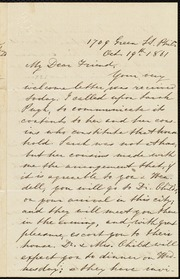 1709 Green St. Phila
Oct. 19th 1861
My Dear Friend,
Your very
welcome letter was received
today. I called upon Sarah
Pugh, to communicate its
contents to her and her cous-
ins, who constitute that house-
hold. Sarah was not there,
but her cousins made with
me the arrangement that, if
it is agreeable to you & Wen-
dell, you will go to Dr. Childs,
on your arrival in this city;
and they will meet you then
in the evening, and, with great
pleasure, escort you to their
house. Dr. & Mrs. Child will
expect you to dinner on Wed-
nesday; & they have eaten